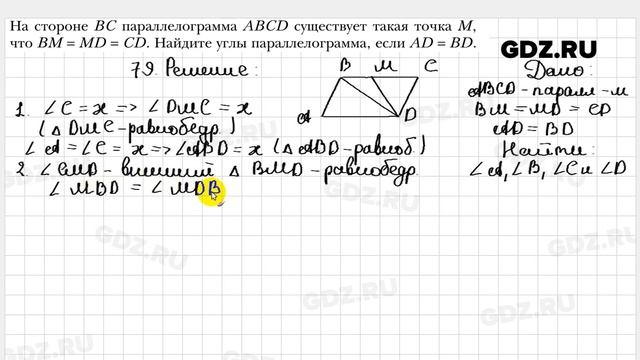 На стороне BC параллелограмма ABCD существует такая точка M,
что BM = MD = CD. Найдите углы параллелограмма, если AD = BD.
GDZ.RU
79. Решение:
B M C
A D
Дано:
ABCD - парал-м
BM = MD = CD
AD = BD
Найти:
∠A, ∠B, ∠C и ∠D
1. ∠C = x => ∠DMC = x
(△ DMC - равнобедр.)
∠A = ∠C = x => ∠ABD = x (△ ABD - равноб.)
2. ∠CMD - внешний △ BMD - равнобедр.
∠MBD = ∠MDB
GDZ.RU
GDZ.RU
GDZ.RU
GDZ.RU